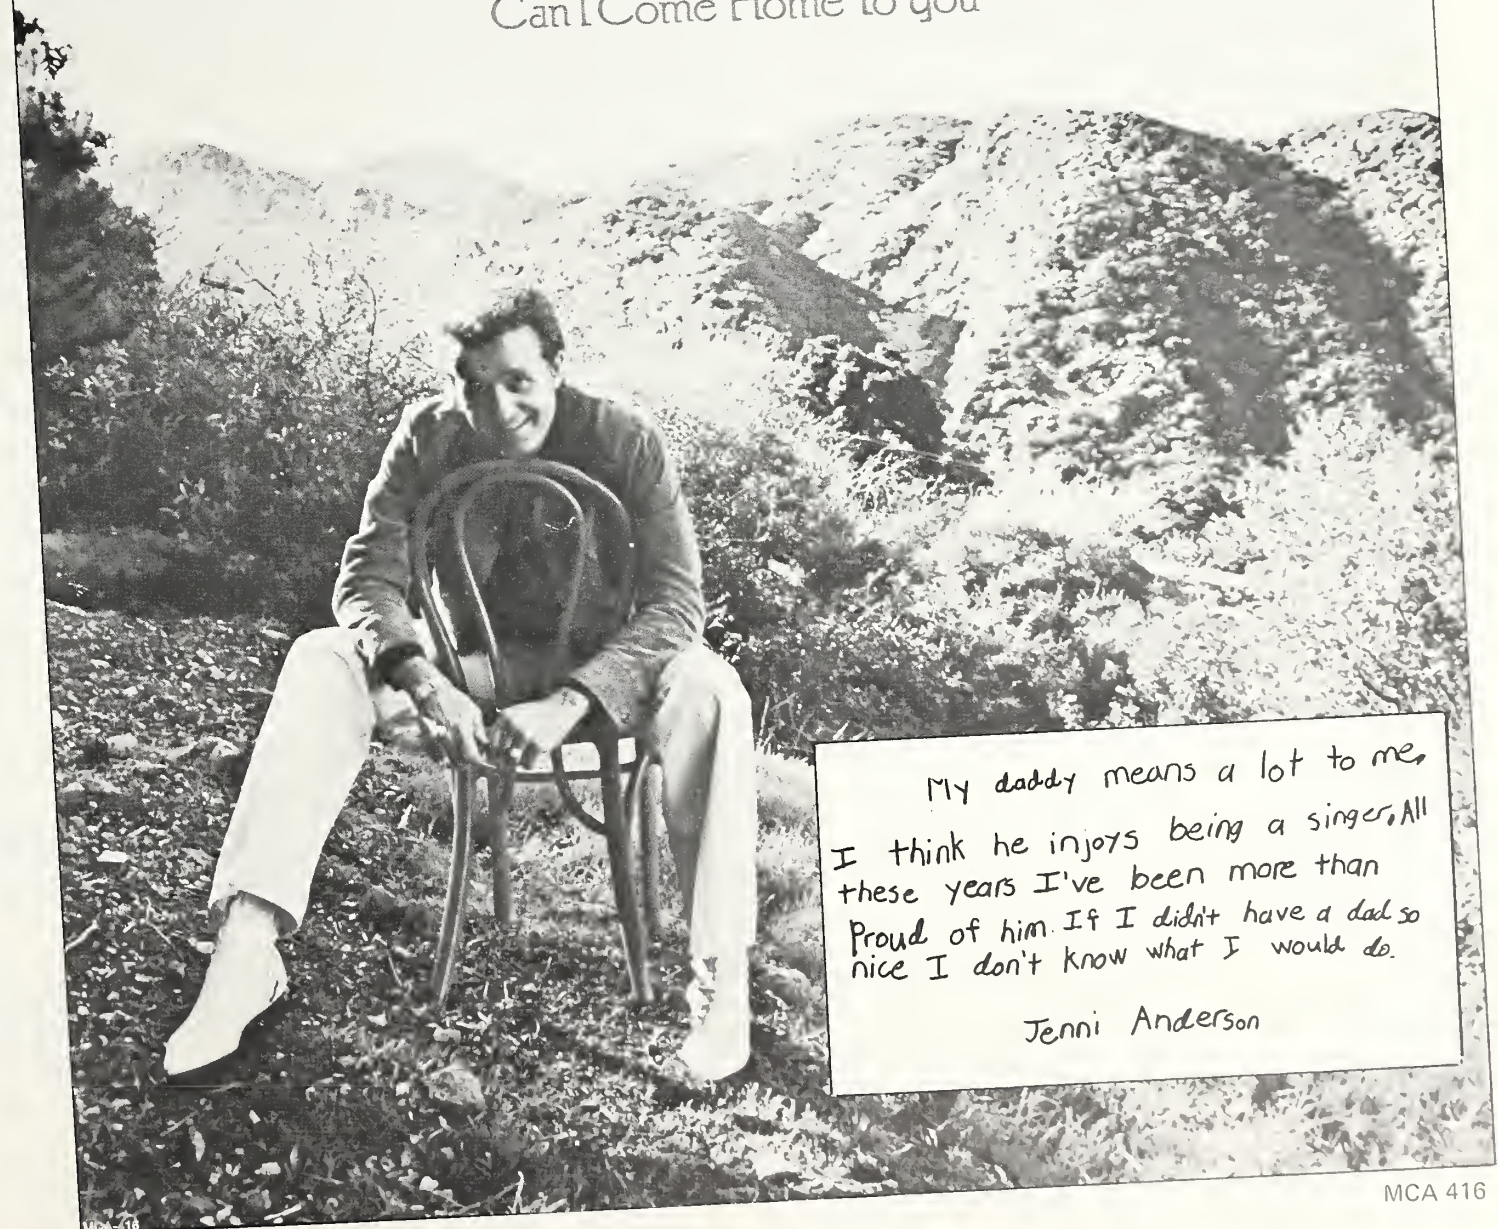 Can I Come Home to you
My daddy means a lot to me.
I think he injoys being a singer. All
these years I've been more than
Proud of him. If I didn't have a dad so
nice I don't know what I would do.
Jenni Anderson
MCA 416
MCA-416